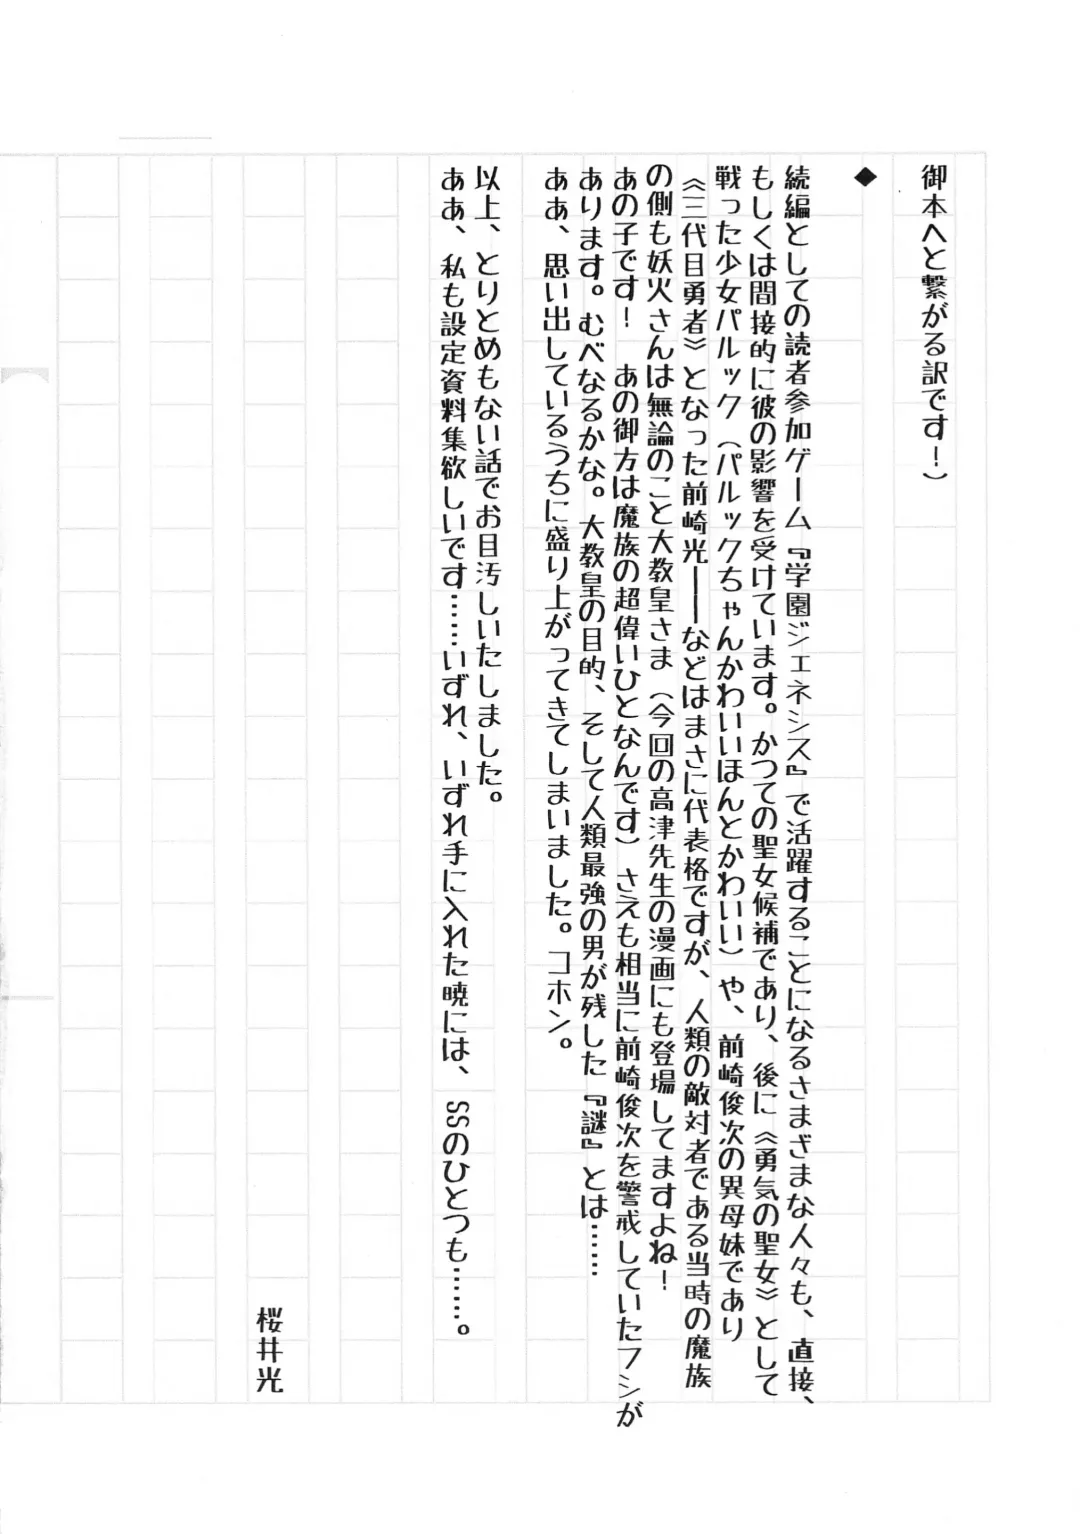 御本へと繋がる訳です！）
◆
続編としての読者参加ゲーム『学園ジェネシス』で活躍することになるさまざまな人々も、直接、
もしくは間接的に彼の影響を受けています。かつての聖女候補であり、後に《勇気の聖女》として
戦った少女パルック（パルックちゃんかわいいほんとかわいい）や、前崎俊次の異母妹であり
《三代目勇者》となった前崎光――などはまさに代表格ですが、人類の敵対者である当時の魔族
の側も妖火さんは無論のこと大教皇さま（今回の高津先生の漫画にも登場してますよね！
あの子です！　あの御方は魔族の超偉いひとなんです）さえも相当に前崎俊次を警戒していたフシが
あります。むべなるかな。大教皇の目的、そして人類最強の男が残した『謎』とは……
ああ、思い出しているうちに盛り上がってきてしまいました。コホン。
以上、とりとめもない話でお目汚しいたしました。
ああ、私も設定資料集欲しいです……いずれ、いずれ手に入れた暁には、SSのひとつも……。
桜井光